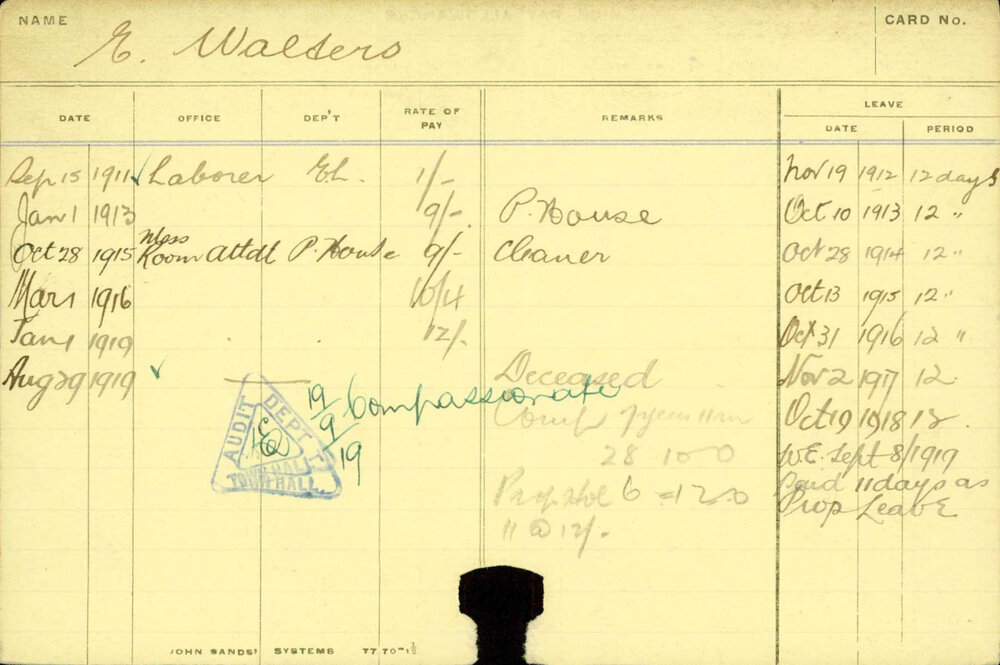 NAME
E. Walters
CARD No.
DATE OFFICE DEP'T RATE OF PAY REMARKS LEAVE
DATE PERIOD
Sep 15 1911 Laborer EL. 1/- Nov 19 1912 12 days
Jan 1 1913 9/- P. House Oct 10 1913 12 "
Oct 28 1915 Mess Room Attdt P. House 9/- Cleaner Oct 28 1914 12 "
Mar 1 1916 10/4 Oct 13 1915 12 "
Jan 1 1919 12/. Oct 31 1916 12 "
Aug 29 1919 Deceased Nov 2 1917 12
19/9/19 Compassionate
Comp 7 years 11 m Oct 19 1918 12.
28 10 0 W.E. Sept 8/1919
Paid 11 days as
Prop Hol 6 = 12 0 Prop Leave
" @ 12/.
AUDIT DEPT
TOWN HALL
JOHN SANDS' SYSTEMS 77.70